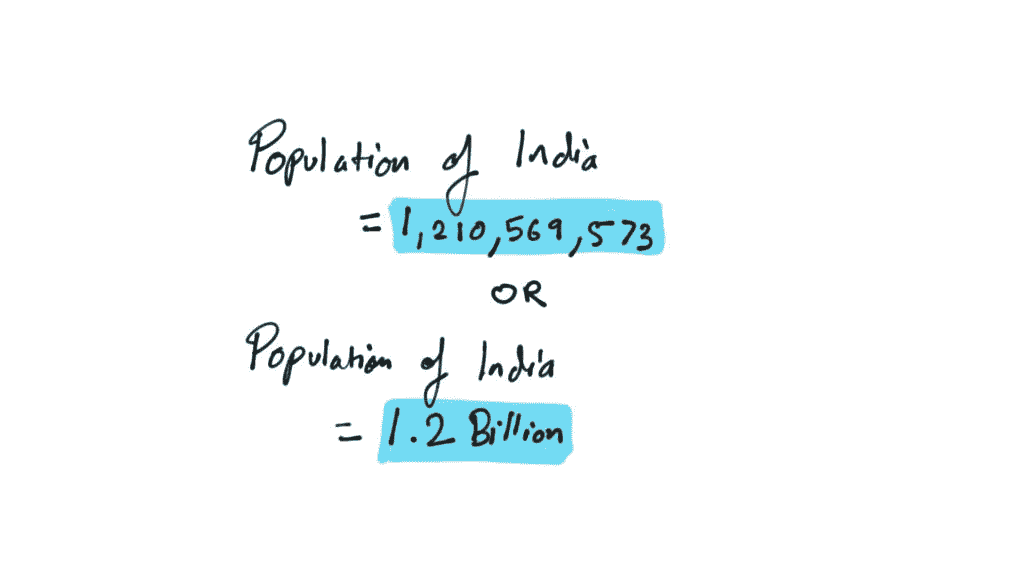 Population of India
= 1,210,569,573
OR
Population of India
= 1.2 Billion